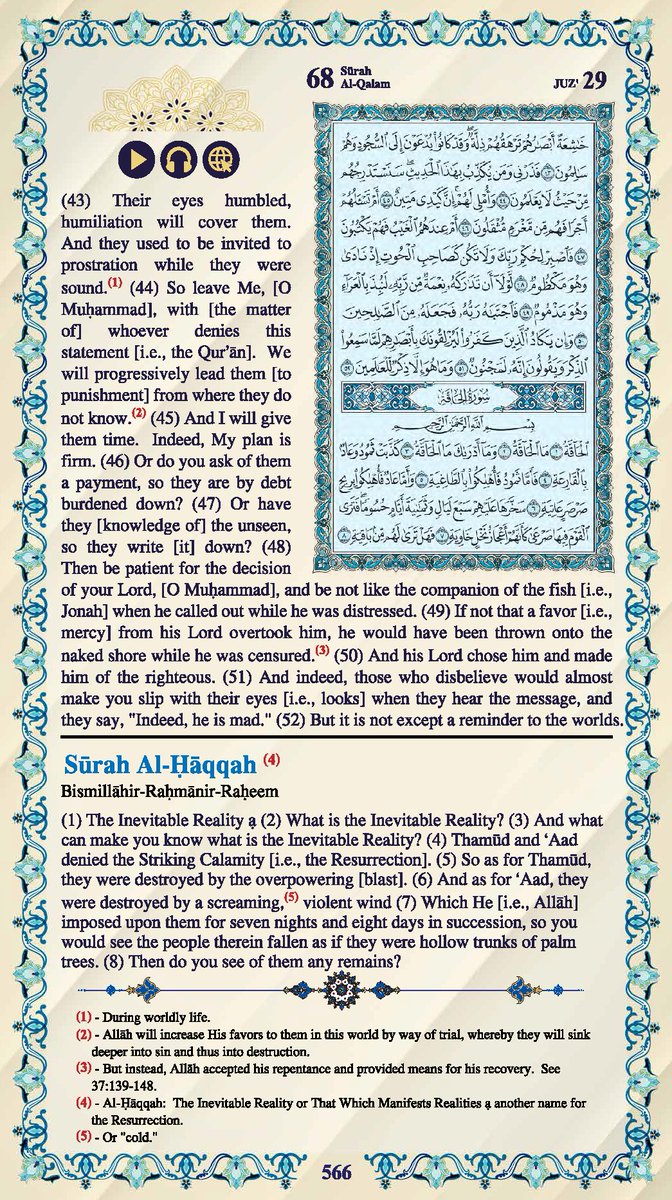 68 Sūrah
Al-Qalam
JUZ' 29
خَٰشِعَةً أَبۡصَٰرُهُمۡ تَرۡهَقُهُمۡ ذِلَّةٞۖ وَقَدۡ كَانُواْ يُدۡعَوۡنَ إِلَى ٱلسُّجُودِ وَهُمۡ
سَٰلِمُونَ ٤٣ فَذَرۡنِي وَمَن يُكَذِّبُ بِهَٰذَا ٱلۡحَدِيثِۖ سَنَسۡتَدۡرِجُهُم
مِّنۡ حَيۡثُ لَا يَعۡلَمُونَ ٤٤ وَأُمۡلِي لَهُمۡۚ إِنَّ كَيۡدِي مَتِينٌ ٤٥ أَمۡ تَسۡـَٔلُهُمۡ
أَجۡرٗا فَهُم مِّن مَّغۡرَمٖ مُّثۡقَلُونَ ٤٦ أَمۡ عِندَهُمُ ٱلۡغَيۡبُ فَهُمۡ يَكۡتُبُونَ
٤٧ فَٱصۡبِرۡ لِحُكۡمِ رَبِّكَ وَلَا تَكُن كَصَاحِبِ ٱلۡحُوتِ إِذۡ نَادَىٰ
وَهُوَ مَكۡظُومٞ ٤٨ لَّوۡلَآ أَن تَدَٰرَكَهُۥ نِعۡمَةٞ مِّن رَّبِّهِۦ لَنُبِذَ بِٱلۡعَرَآءِ
وَهُوَ مَذۡمُومٞ ٤٩ فَٱجۡتَبَٰهُ رَبُّهُۥ فَجَعَلَهُۥ مِنَ ٱلصَّٰلِحِينَ
٥٠ وَإِن يَكَادُ ٱلَّذِينَ كَفَرُواْ لَيُزۡلِقُونَكَ بِأَبۡصَٰرِهِمۡ لَمَّا سَمِعُواْ
ٱلذِّكۡرَ وَيَقُولُونَ إِنَّهُۥ لَمَجۡنُونٞ ٥١ وَمَا هُوَ إِلَّا ذِكۡرٞ لِّلۡعَٰلَمِينَ ٥٢
سُورَةُ الحَاقَّةِ
بِسۡمِ ٱللَّهِ ٱلرَّحۡمَٰنِ ٱلرَّحِيمِ
ٱلۡحَآقَّةُ ١ مَا ٱلۡحَآقَّةُ ٢ وَمَآ أَدۡرَىٰكَ مَا ٱلۡحَآقَّةُ ٣ كَذَّبَتۡ ثَمُودُ وَعَادُۢ
بِٱلۡقَارِعَةِ ٤ فَأَمَّا ثَمُودُ فَأُهۡلِكُواْ بِٱلطَّاغِيَةِ ٥ وَأَمَّا عَادٞ فَأُهۡلِكُواْ بِرِيحٖ
صَرۡصَرٍ عَاتِيَةٖ ٦ سَخَّرَهَا عَلَيۡهِمۡ سَبۡعَ لَيَالٖ وَثَمَٰنِيَةَ أَيَّامٍ حُسُومٗاۖ فَتَرَى
ٱلۡقَوۡمَ فِيهَا صَرۡعَىٰ كَأَنَّهُمۡ أَعۡجَازُ نَخۡلٍ خَاوِيَةٖ ٧ فَهَلۡ تَرَىٰ لَهُم مِّنۢ بَاقِيَةٖ ٨
(43) Their eyes humbled,
humiliation will cover them.
And they used to be invited to
prostration while they were
sound.(1) (44) So leave Me, [O
Muḥammad], with [the matter
of] whoever denies this
statement [i.e., the Qur'ān]. We
will progressively lead them [to
punishment] from where they do
not know.(2) (45) And I will give
them time. Indeed, My plan is
firm. (46) Or do you ask of them
a payment, so they are by debt
burdened down? (47) Or have
they [knowledge of] the unseen,
so they write [it] down? (48)
Then be patient for the decision
of your Lord, [O Muḥammad], and be not like the companion of the fish [i.e.,
Jonah] when he called out while he was distressed. (49) If not that a favor [i.e.,
mercy] from his Lord overtook him, he would have been thrown onto the
naked shore while he was censured.(3) (50) And his Lord chose him and made
him of the righteous. (51) And indeed, those who disbelieve would almost
make you slip with their eyes [i.e., looks] when they hear the message, and
they say, "Indeed, he is mad." (52) But it is not except a reminder to the worlds.
Sūrah Al-Ḥāqqah (4)
Bismillāhir-Raḥmānir-Raḥeem
(1) The Inevitable Reality ą (2) What is the Inevitable Reality? (3) And what
can make you know what is the Inevitable Reality? (4) Thamūd and 'Aad
denied the Striking Calamity [i.e., the Resurrection]. (5) So as for Thamūd,
they were destroyed by the overpowering [blast]. (6) And as for 'Aad, they
were destroyed by a screaming,(5) violent wind (7) Which He [i.e., Allāh]
imposed upon them for seven nights and eight days in succession, so you
would see the people therein fallen as if they were hollow trunks of palm
trees. (8) Then do you see of them any remains?
(1) - During worldly life.
(2) - Allāh will increase His favors to them in this world by way of trial, whereby they will sink
deeper into sin and thus into destruction.
(3) - But instead, Allāh accepted his repentance and provided means for his recovery. See
37:139-148.
(4) - Al-Ḥāqqah: The Inevitable Reality or That Which Manifests Realities ą another name for
the Resurrection.
(5) - Or "cold."
566